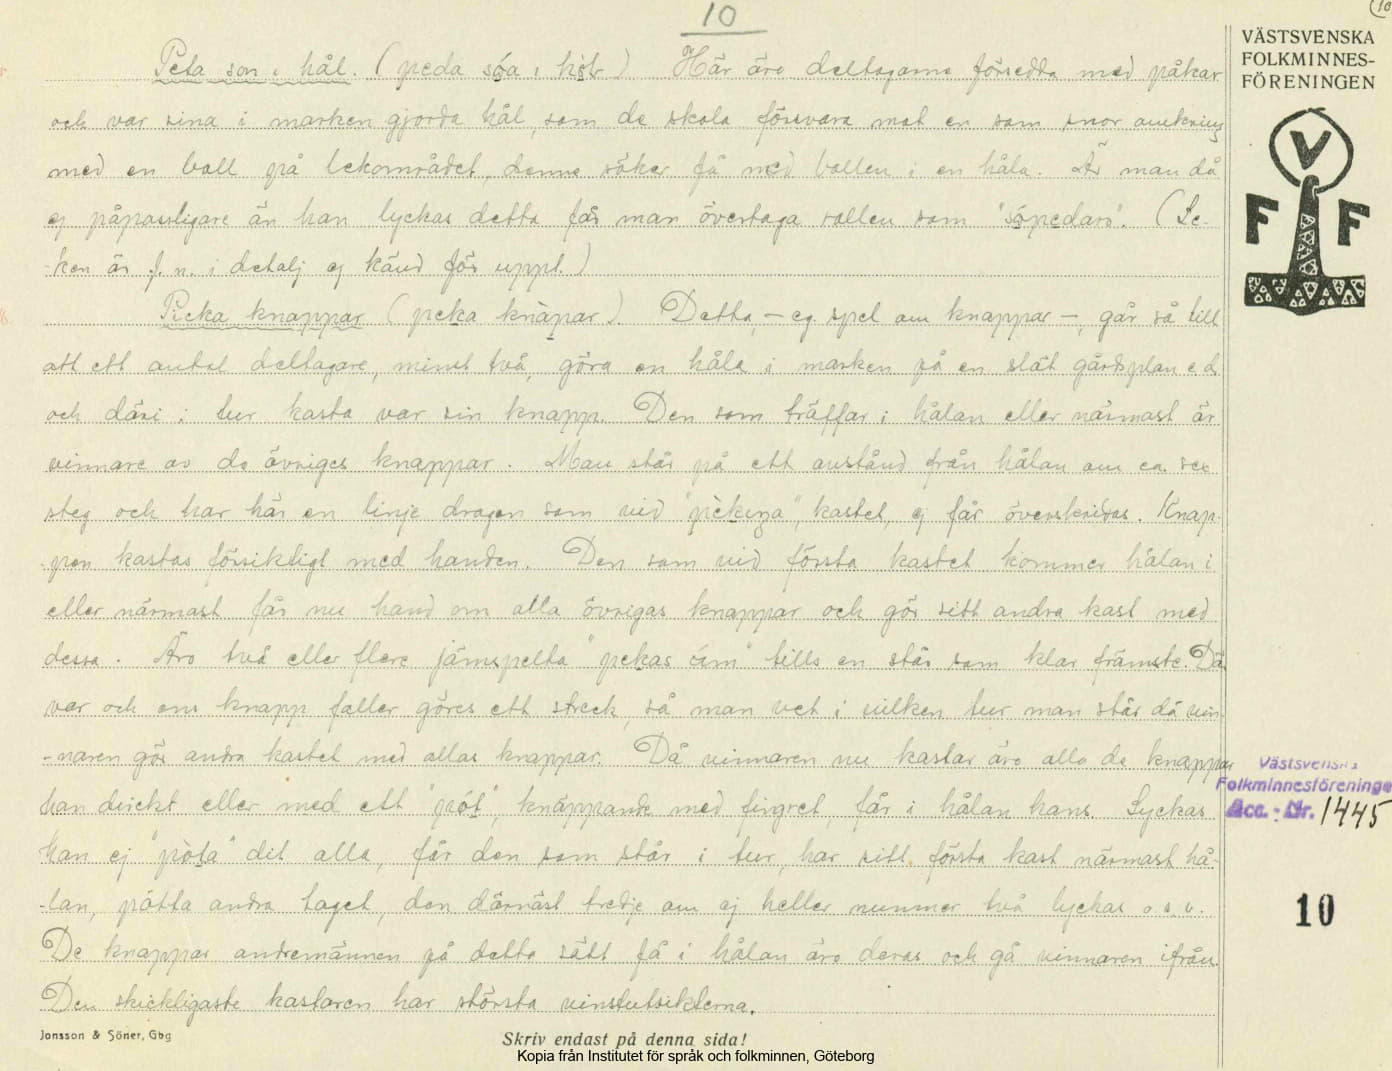 10
Peta son i hål. (peda sóa i hòlr) Här äro deltagarna försedda med påkar
och var sina i marken gjorda hål, som de skola försvara mot en som snor omkring
med en boll på lekområdet, denne söker få ned bollen i en håla. Är man då
ej påpassligare än han lyckas detta får man övertaga rollen som "sópedarö". (Le-
-ken är f. n. i detalj ej känd för uppt.)
Picka knappar (peka knàpar). Detta, – eg. spel om knappar –, går så till
att ett antal deltagare, minst två, göra en håla i marken på en slät gårdsplan e.d.
och däri i tur kasta var sin knapp. Den som träffar i hålan eller närmast är
vinnare av de övriges knappar. Man står på ett avstånd från hålan om ca. sex
steg och har här en linje dragen som vid "pèkinga", kastet, ej får överskridas. Knap-
-pen kastas försiktigt med handen. Den som vid första kastet kommer hålan i
eller närmast får nu hand om alla övrigas knappar och gör sitt andra kast med
dessa. Äro två eller flere jämspelta "pekas óm" tills en står som klar främste. Där
var och ens knapp faller göres ett streck, så man vet i vilken tur man står då vin-
-naren gör andra kastet med allas knappar. Då vinnaren nu kastar äro alla de knappar
han direkt eller med ett "pót", knäppande med fingret, får i hålan hans. Lyckas
han ej "pòta" dit alla, får den som står i tur, har sitt första kast närmast hå-
-lan, påtta andra taget, den därnäst tredje om ej heller nummer två lyckas o.s.v.
De knappar andremännen på detta sätt få i hålan äro deras och gå vinnaren ifrån.
Den skickligaste kastaren har största vinstutsikterna.
Jonsson & Söner, Gbg
Skriv endast på denna sida!
Kopia från Institutet för språk och folkminnen, Göteborg
VÄSTSVENSKA
FOLKMINNES-
FÖRENINGEN
V
F F
Västsvenska
Folkminnesföreningen
Acc. - Nr. 1445
10